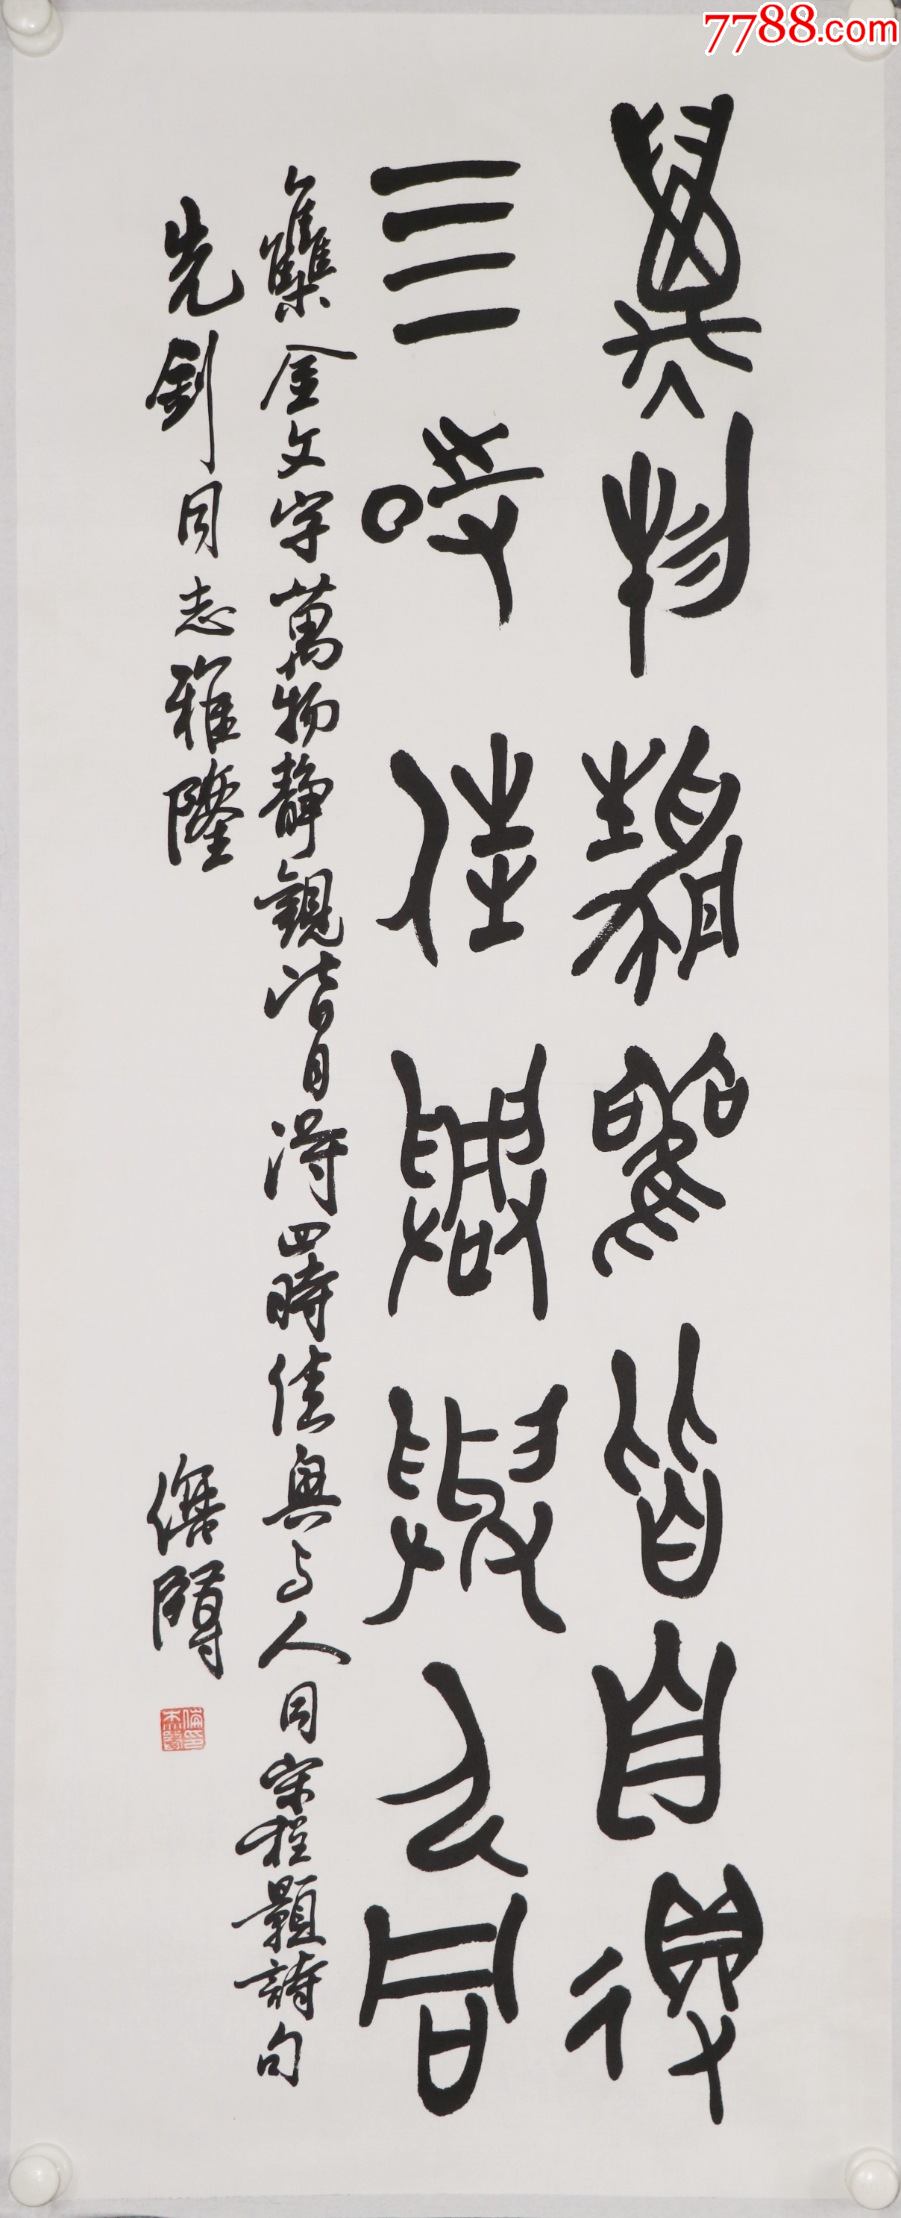 7788.com
萬物静觀皆自得
三時佳興與人同
雧金文字萬物靜觀皆自得四時佳興与人同宋程顥詩句
先釗同志雅鑒